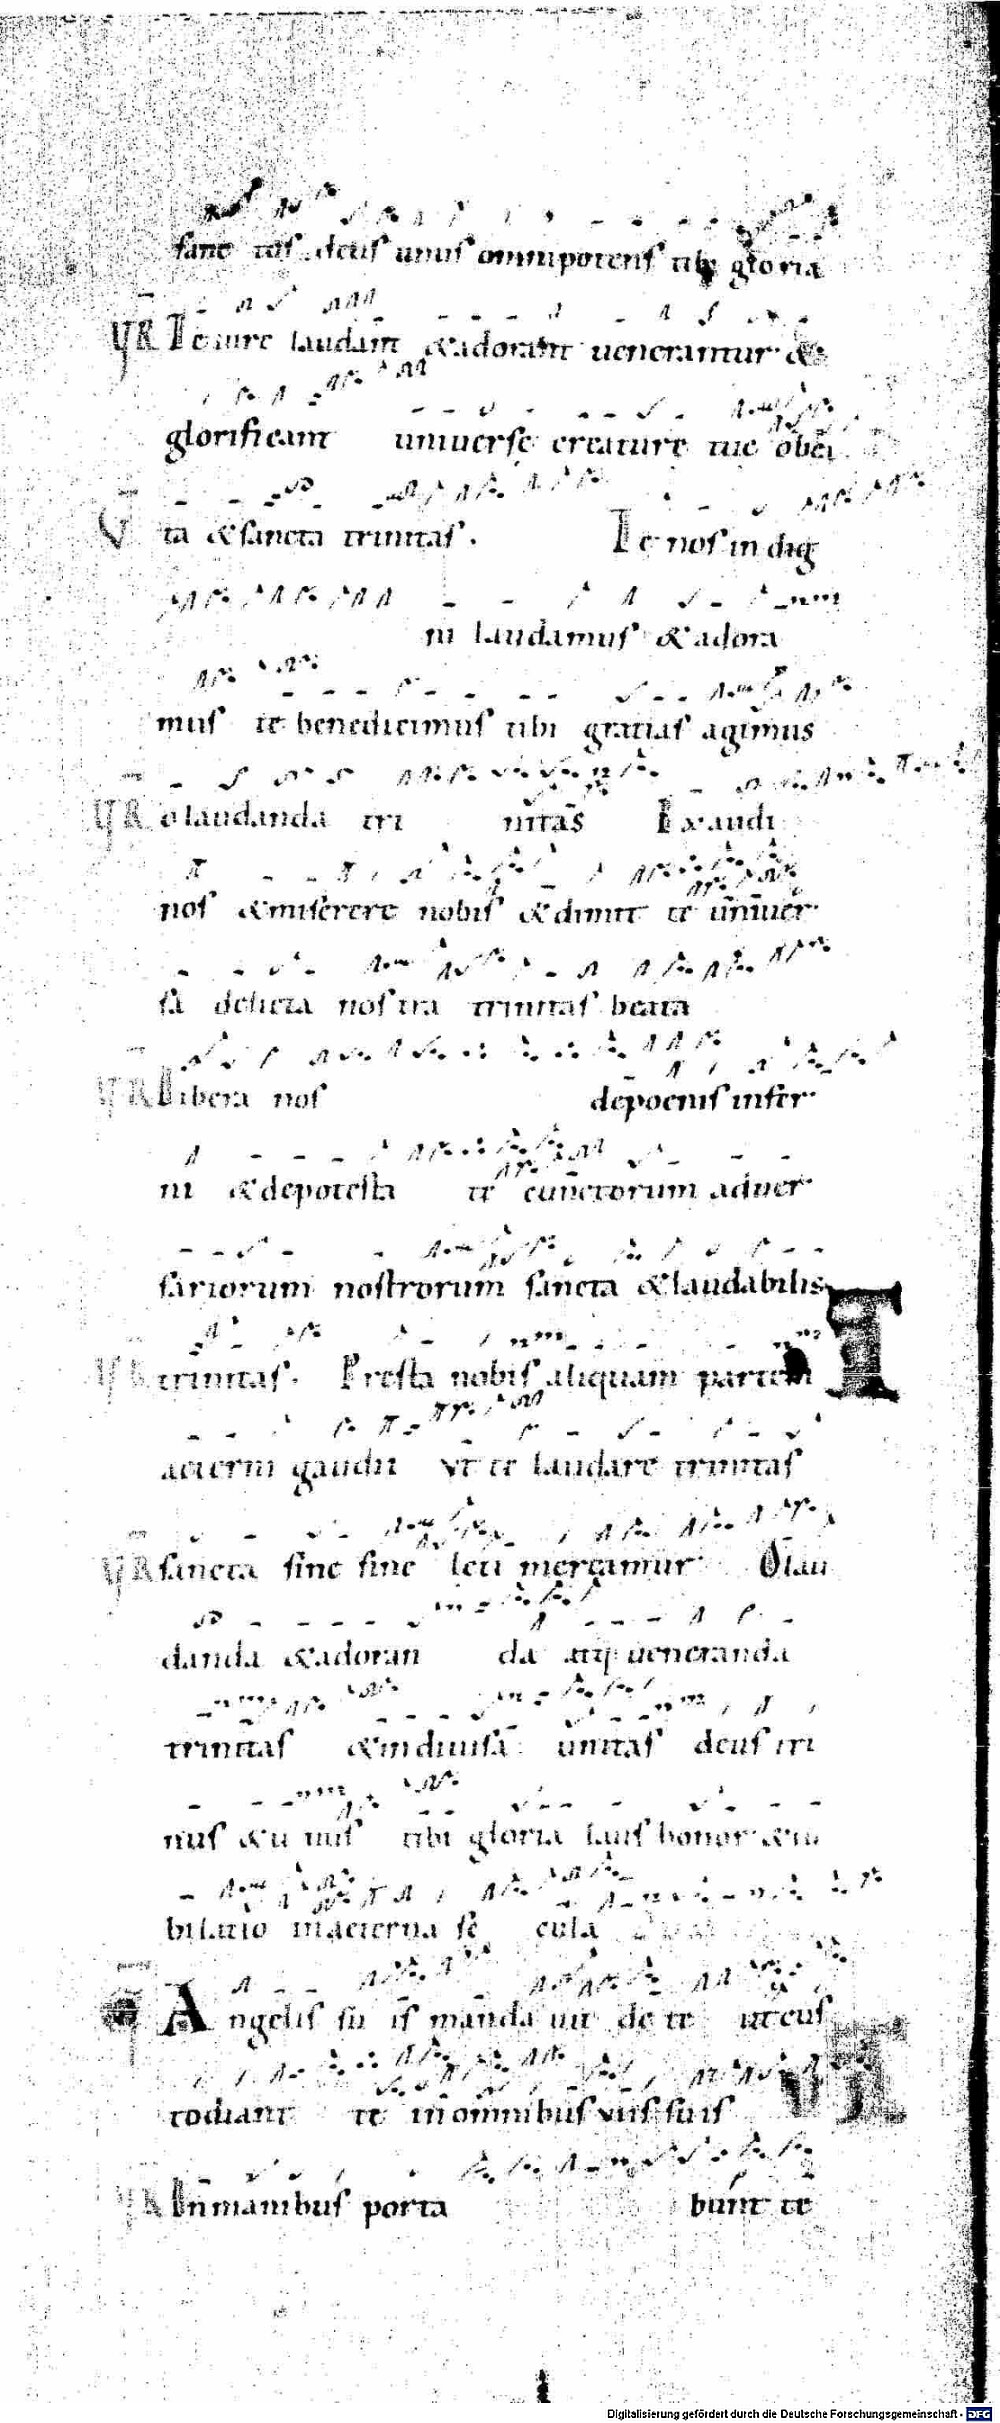 sanc tus deus unus omnipotens tibi gloria
VR Te iure laudant & adorant uenerantur &
glorificant uniuerse creature tue o bea
V ta & sancta trinitas . Te nos in dig
ni laudamus & adora
mus te benedicimus tibi gratias agimus
VR o laudanda tri nitas Exaudi
nos & miserere nobis & dimit te uniuer
sa delicta nostra trinitas beata
VR Libera nos de poenis infer
ni & de potesta te cunctorum aduer
sariorum nostrorum sancta & laudabilis
VR trinitas . Presta nobis aliquam partem T
aeterni gaudii vt te laudare trinitas
VR sancta sine fine leti mereamur O lau
danda & adoran da atq; ueneranda
trinitas & indiuisa unitas deus tri
nus & u nus tibi gloria laus honor & iu
bilatio in aeterna se cula
A ngelis su is manda uit de te ut cus
todiant te in omnibus viis suis
VR In manibus porta bunt te
Digitalisierung gefördert durch die Deutsche Forschungsgemeinschaft - DFG